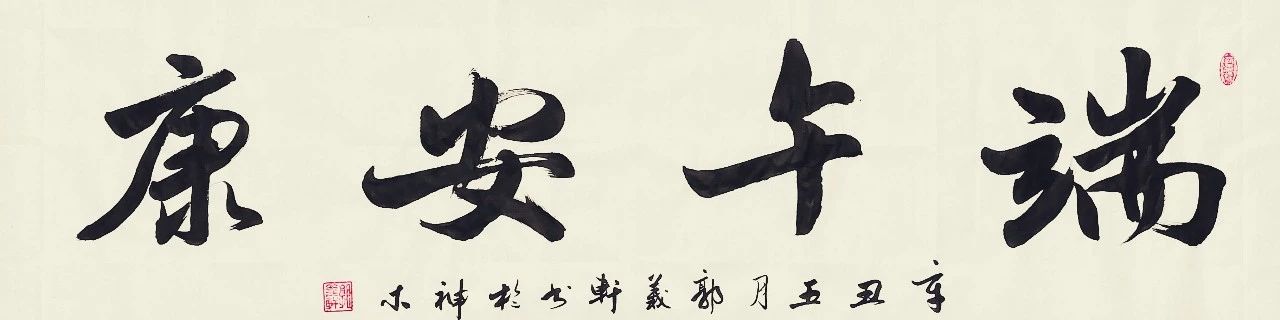 端午安康
辛丑五月郭義軒书於神木